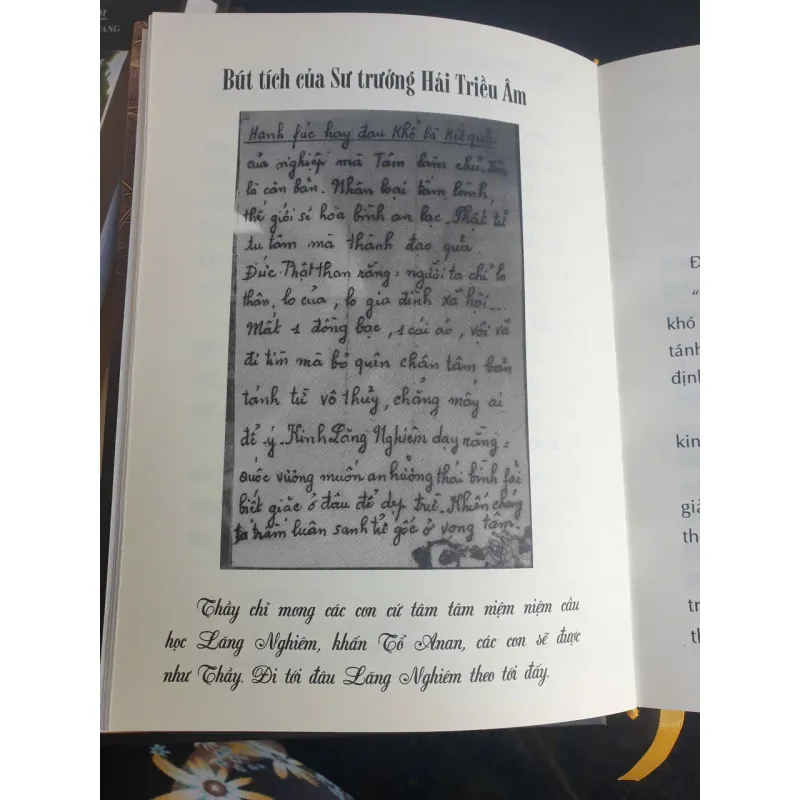 Bút tích của Sư trưởng Hải Triều Âm
Hạnh fúc hay đau khổ là kết quả
của nghiệp mà Tâm làm chủ. Tâm
là căn bản. Nhân loại tâm lành,
thế giới sẽ hòa bình an lạc. Phật tử
tu tâm mà thành đạo quả.
Đức Phật than rằng: người ta chỉ lo
thân, lo của, lo gia đình xã hội...
Mất 1 đồng bạc, 1 cái áo, vội vã
đi tìm mà bỏ quên chân tâm bản
tánh từ vô thủy, chẳng mấy ai
để ý. Kinh Lăng Nghiêm dạy rằng:
Quốc vương muốn an hưởng thái bình fải
biết giặc ở đâu để dẹp trừ. Khiến chúng
ta trầm luân sanh tử gốc ở vọng tâm.
Thầy chỉ mong các con cứ tâm tâm niệm niệm cầu
học Lăng Nghiêm, khấn Tổ Anan, các con sẽ được
như Thầy. Đi tới đâu Lăng Nghiêm theo tới đấy.
Đ
"
khó
tánh
định
kin
giả
th
tr
th